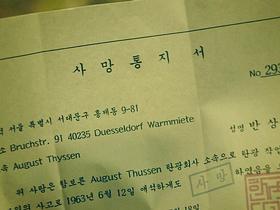 사 망 통 지 서
No 293
서울 특별시 서대문구 홍제동 9-81
Bruchstr. 91 40235 Duesseldorf Warmmiete
성명 반 상
속 August Thyssen
위 사람은 함보른 August Thussen 탄광회사 소속으로 탄광 작업
사고로 1963년 6월 12일 애석하게도 사 망 하였음을